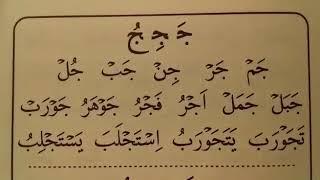 جَ جِ جُ
جَمْ جَرْ جِنْ جَبْ جُلْ
جَبَلْ جَمَلْ اَجْرُ فَجْرُ جَوْهَرُ جَوْرَبْ
تَجَوْرَبَ يَتَجَوْرَبُ اِسْتَجْلَبَ يَسْتَجْلِبُ